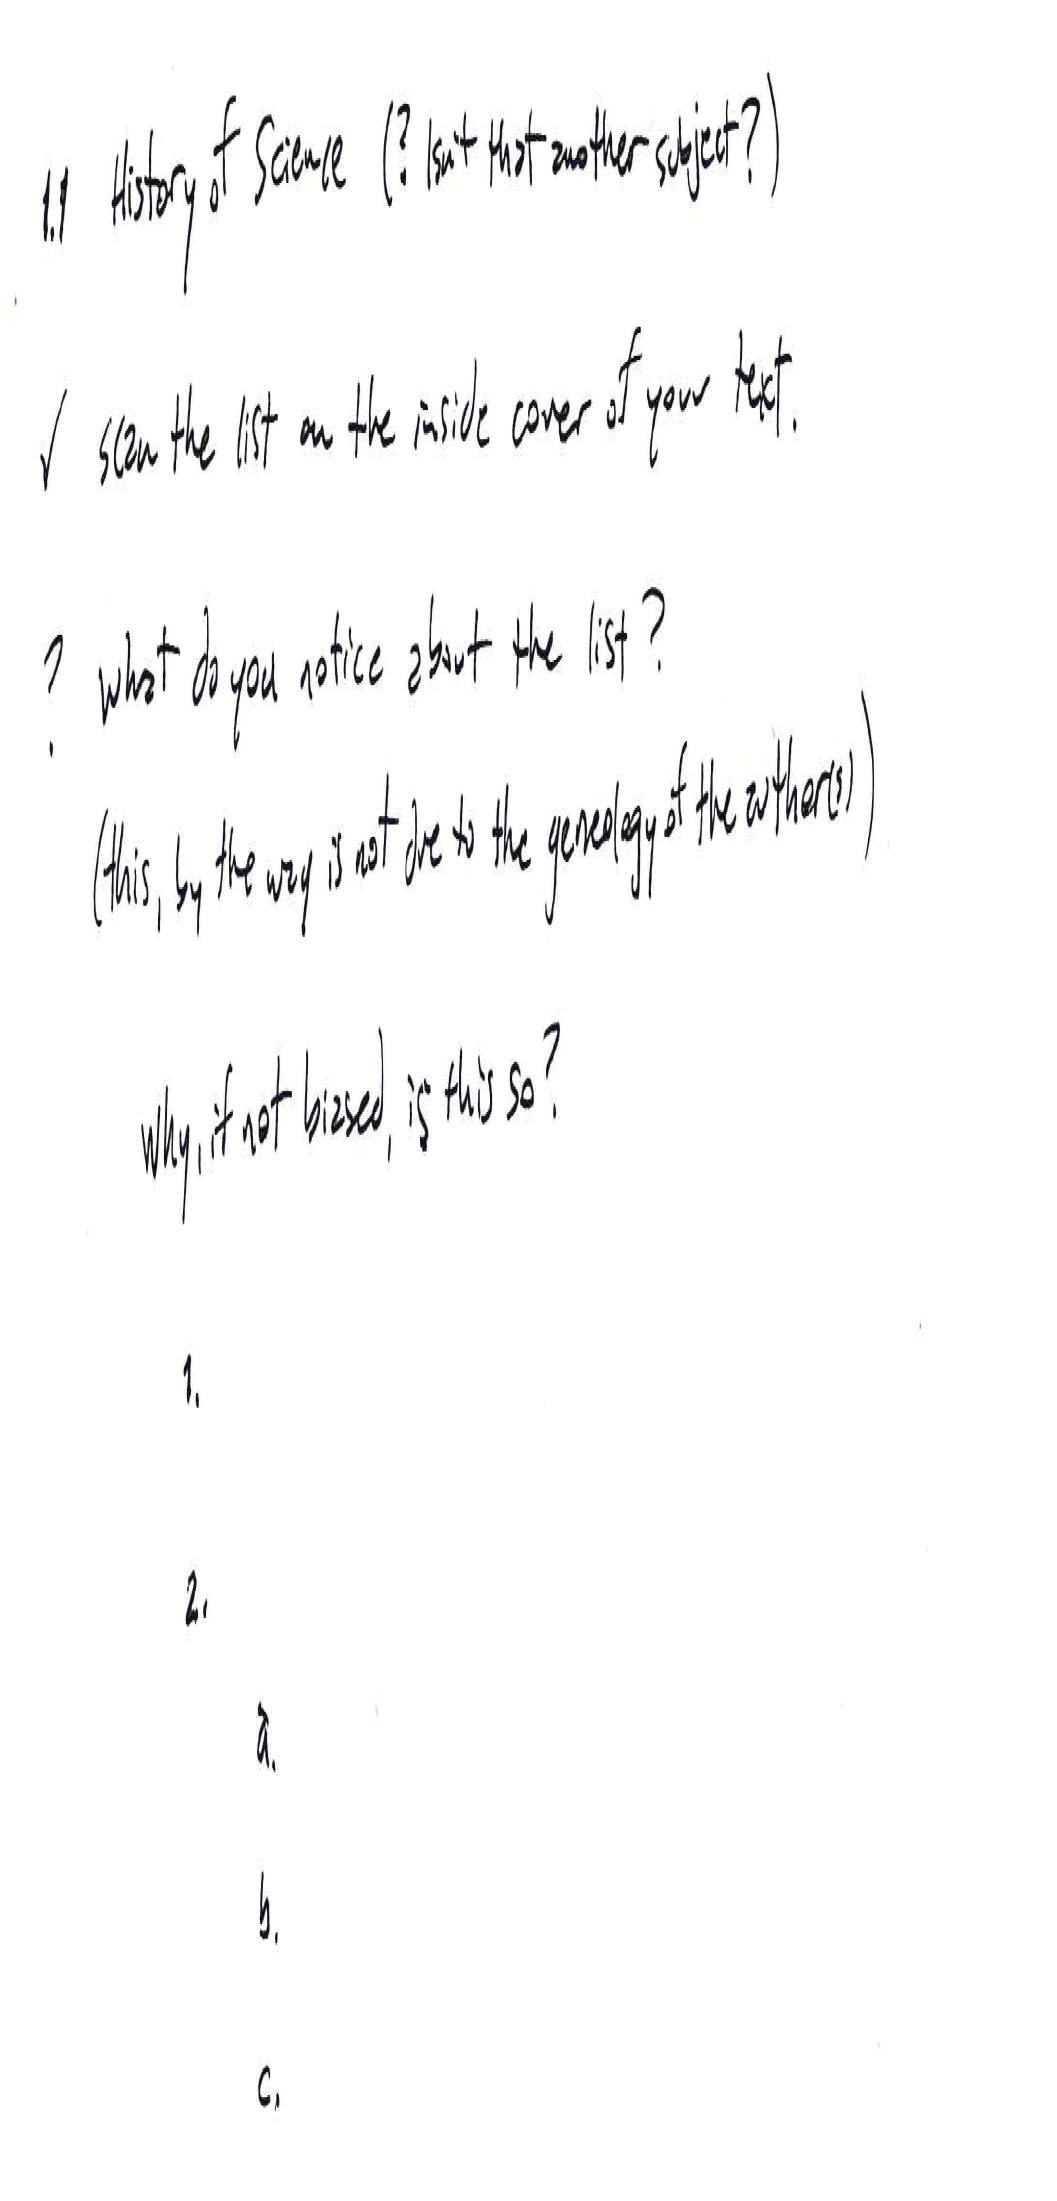 1.1 History of Science (? Isn't that another subject?)
✓ scan the list on the inside cover of your text.
? what do you notice about the list?
(this, by the way is not due to the geneology of the author(s))
why, if not biased, is this so?
1.
2.
a.
b.
c.